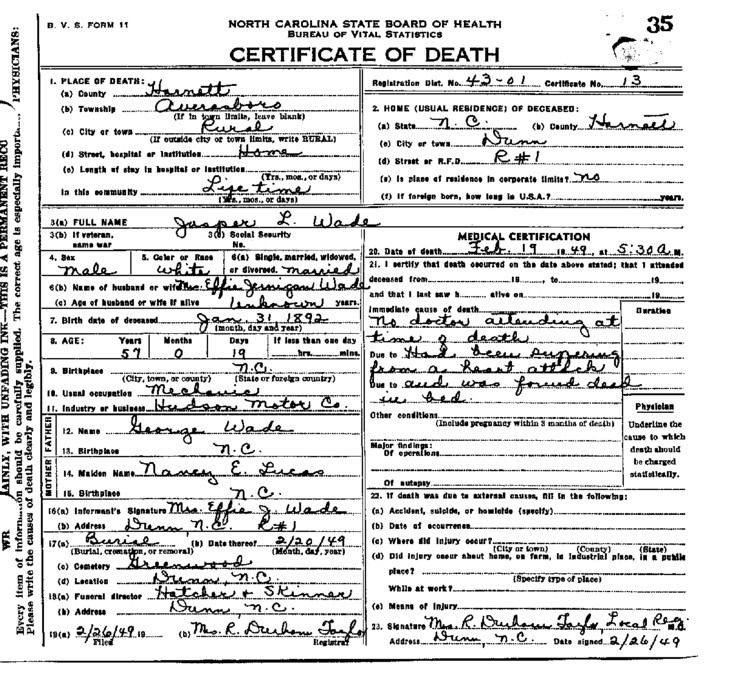 B. V. S. FORM 11
NORTH CAROLINA STATE BOARD OF HEALTH
BUREAU OF VITAL STATISTICS
CERTIFICATE OF DEATH
35
1. PLACE OF DEATH:
(a) County Harnett
(b) Township Averasboro
(If in town limits, leave blank)
(c) City or town Rural
(If outside city or town limits, write RURAL)
(d) Street, hospital or institution Home
(e) Length of stay in hospital or institution
(Yrs., mos., or days)
In this community Life time
(Yrs., mos., or days)
Registration Dist. No. 43-01 Certificate No. 13
2. HOME (USUAL RESIDENCE) OF DECEASED:
(a) State N. C. (b) County Harnett
(c) City or town Dunn
(d) Street or R.F.D. R #1
(e) Is place of residence in corporate limits? no
(f) If foreign born, how long in U.S.A.? years.
3(a) FULL NAME Jasper L. Wade
3(b) If veteran, name war
3(c) Social Security No.
4. Sex male
5. Color or Race white
6(a) Single, married, widowed, or divorced. married
6(b) Name of husband or wife Mrs. Effie Jernigan Wade
(c) Age of husband or wife if alive unknown years.
7. Birth date of deceased Jan. 31, 1892
(month, day and year)
8. AGE: Years Months Days If less than one day
57 0 19 hrs. mins.
9. Birthplace N.C.
(City, town, or county) (State or foreign country)
10. Usual occupation Mechanic
11. Industry or business Hudson Motor Co.
FATHER
12. Name George Wade
13. Birthplace N.C.
MOTHER
14. Maiden Name Nancy E. Lucas
15. Birthplace N.C.
16(a) Informant's Signature Mrs. Effie J. Wade
(b) Address Dunn N.C. R#1
17(a) Burial (b) Date thereof 2/20/49
(Burial, cremation, or removal) (Month, day, year)
(c) Cemetery Greenwood
(d) Location Dunn, N.C.
18(a) Funeral director Hatcher & Skinner
(b) Address Dunn, N.C.
19(a) 2/26/49 19 (b) Mrs. R. Durham Taylor
Filed Registrar
MEDICAL CERTIFICATION
20. Date of death Feb. 19 1949, at 5:30 a. M.
21. I certify that death occurred on the date above stated; that I attended
deceased from 19, to 19
and that I last saw h alive on 19
Immediate cause of death Duration
No doctor attending at
time of death
Due to Had been suffering
from a heart attack
Due to and was found dead
in bed.
Other conditions
(Include pregnancy within 3 months of death)
Major findings:
Of operations
Of autopsy
Physician
Underline the
cause to which
death should
be charged
statistically.
22. If death was due to external causes, fill in the following:
(a) Accident, suicide, or homicide (specify)
(b) Date of occurrence
(c) Where did injury occur?
(City or town) (County) (State)
(d) Did injury occur about home, on farm, in industrial place, in a public
place?
(Specify type of place)
While at work?
(e) Means of injury
23. Signature Mrs. R. Durham Taylor, Local Reg. M.D.
Address Dunn, N.C. Date signed 2/26/49
AINLY, WITH UNFADING INK—THIS IS A PERMANENT RECO
WR
Every item of inform on should be carefully supplied. The correct age is especially importa PHYSICIANS:
Please write the causes of death clearly and legibly.